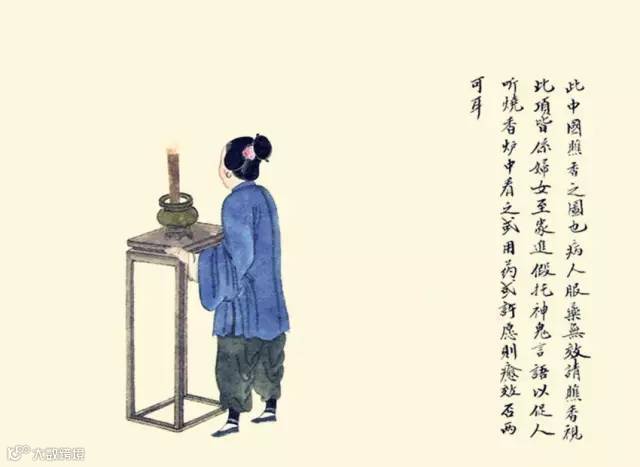 此中國瞧香之圖也病人服藥無效請瞧香視
此項皆係婦女至家進假托神鬼言語以促人
听燒香炉中看之或用药或許愿則癒效否两
可耳
大数跨境